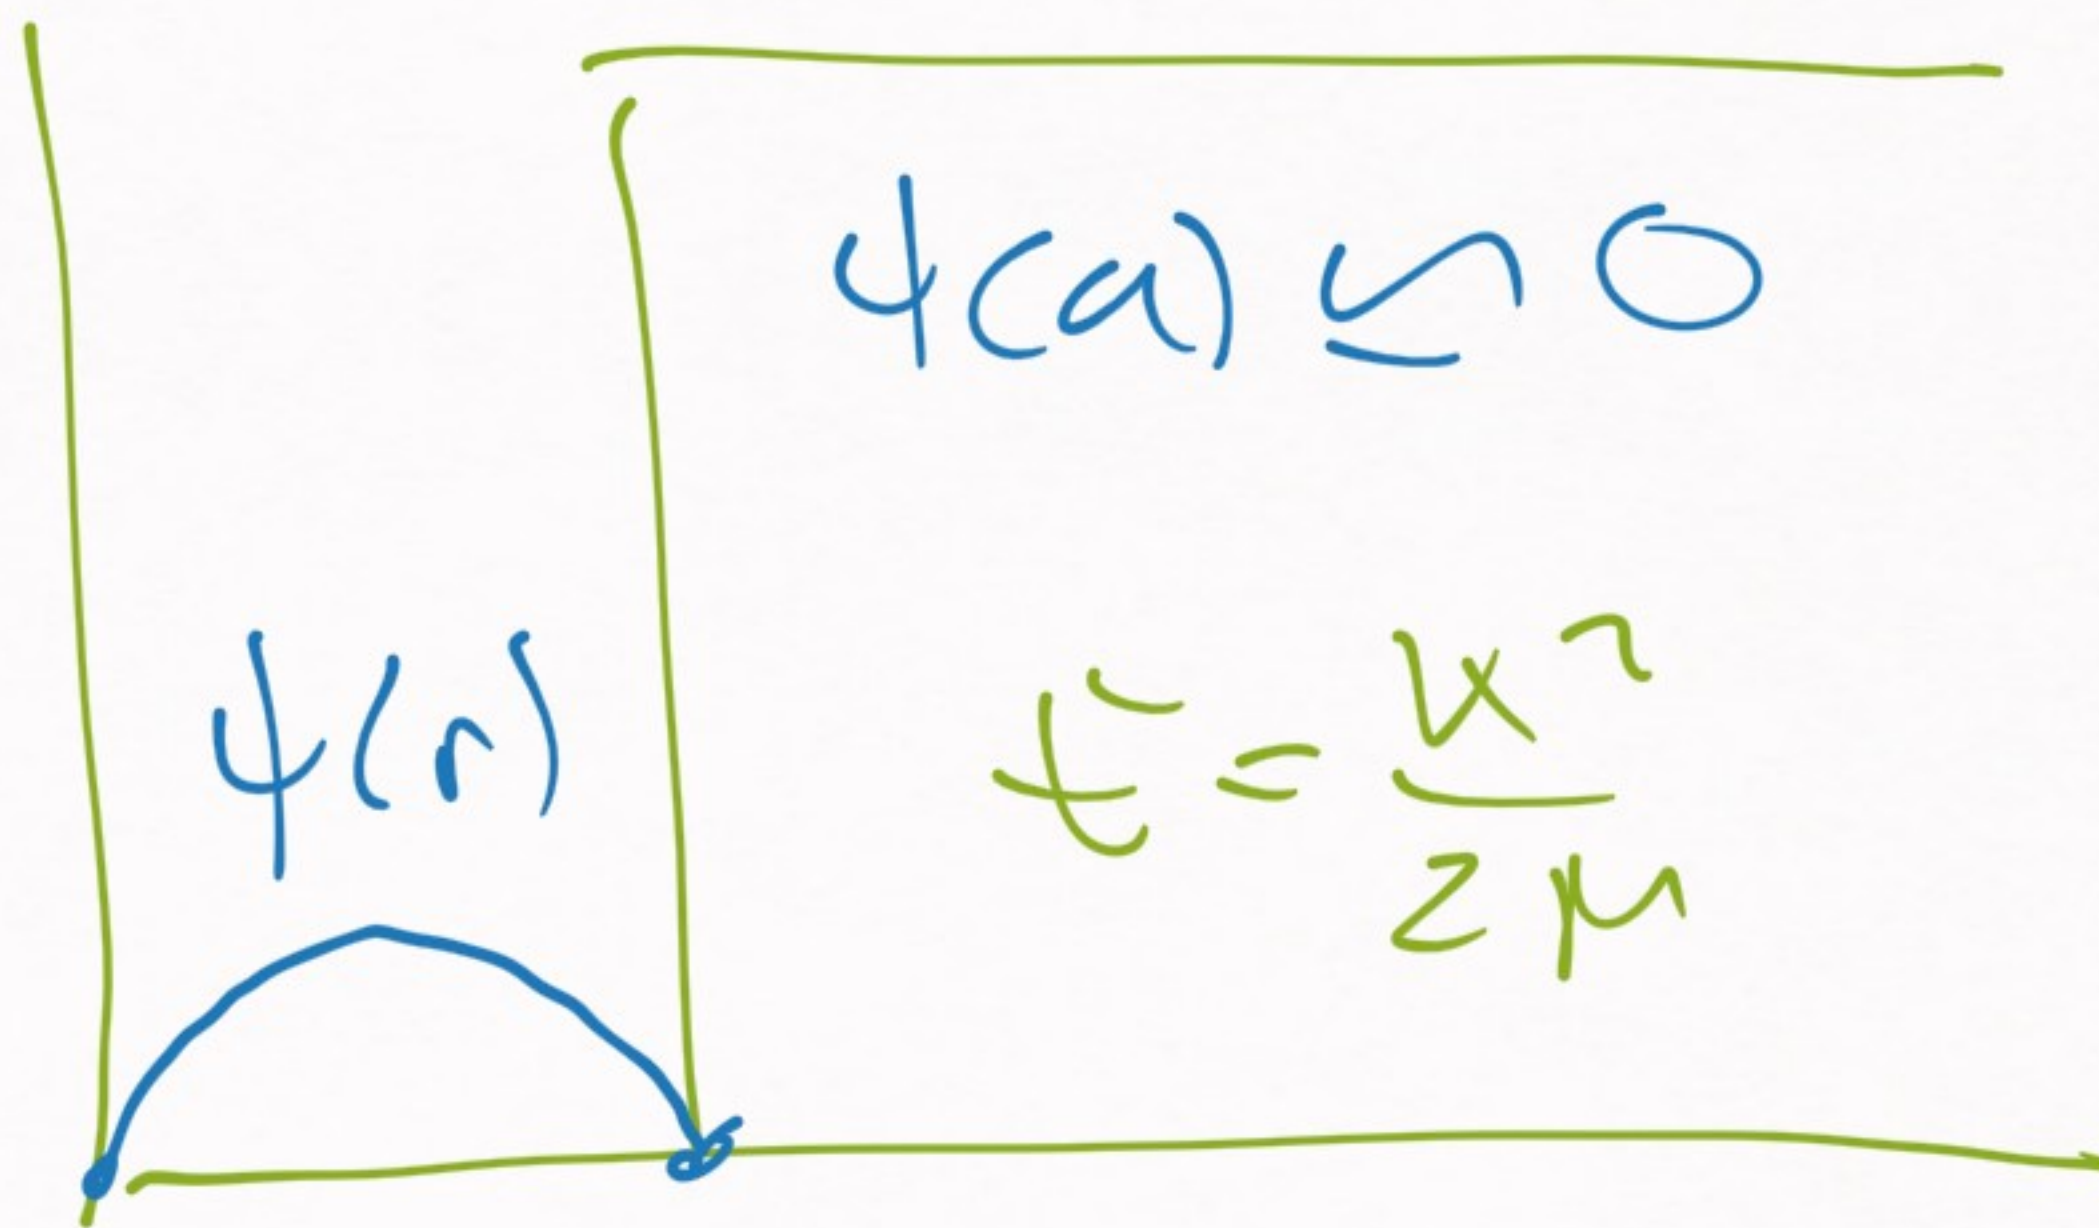 ψ(a) ≃ 0
ψ(r)
E = k²
2μ